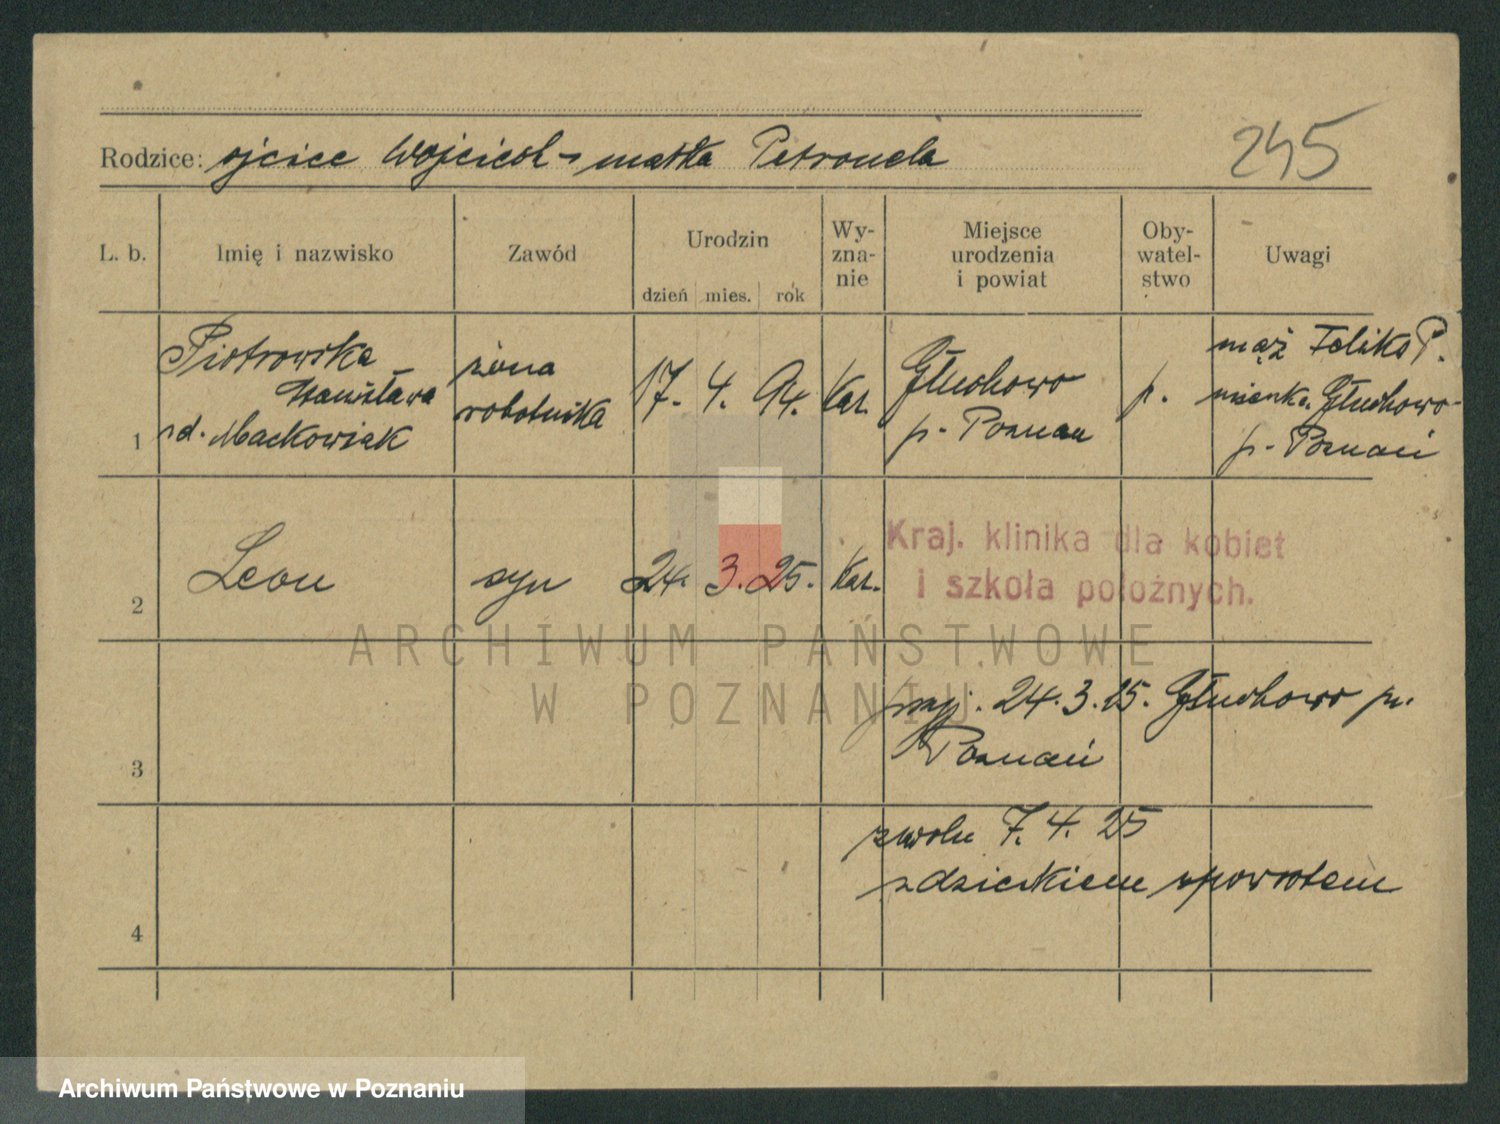 Rodzice: ojciec Wojciech - matka Petronela
245
L. b.
Imię i nazwisko
Zawód
Urodzin
dzień mies. rok
Wy-
zna-
nie
Miejsce
urodzenia
i powiat
Oby-
watel-
stwo
Uwagi
1
Piotrowska
Stanisława
rd. Maćkowiak
żona
robotnika
17. 4. 94. Kat.
Głuchowo
p. Poznań
p.
mąż Feliks P.
mieszk. Głuchowo
p. Poznań
2
Leon
syn
24. 3. 25. Kat.
Kraj. klinika dla kobiet
i szkoła położnych.
3
24.3.25. Głuchowo pw.
Poznań
4
zwoln 7. 4. 25
z dzieckiem spowrotem
ARCHIWUM PAŃSTWOWE
W POZNANIU
Archiwum Państwowe w Poznaniu